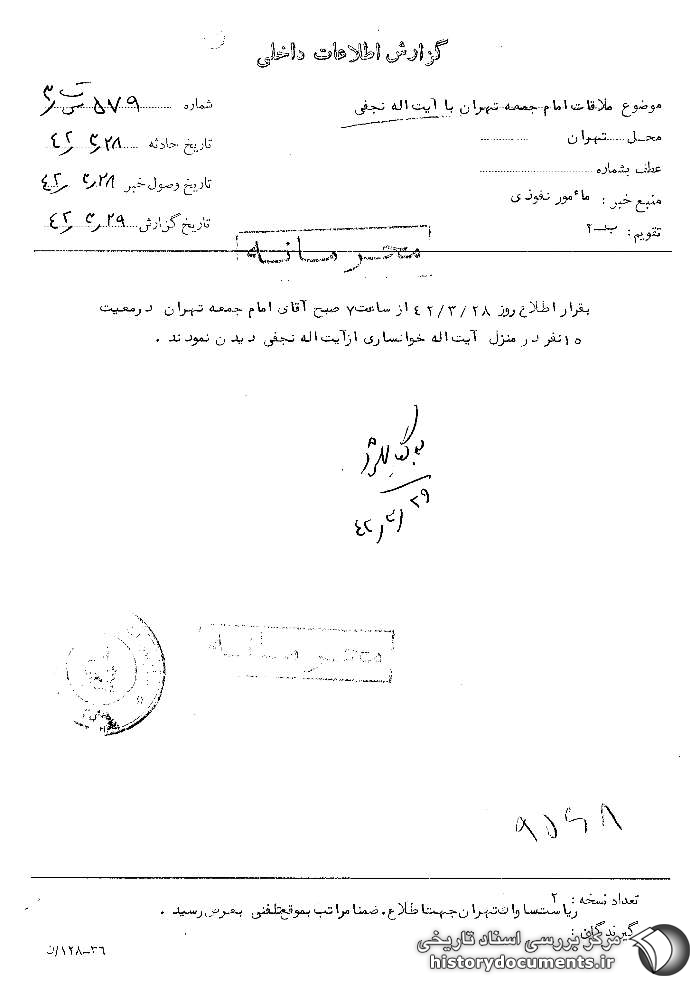 گزارش اطلاعات داخلی
موضوع ملاقات امام جمعه تهران با آیت اله نجفی
محل تهران
عطف بشماره
منبع خبر : مأمور نفوذی
تقویم : ب-۲
شماره ۵۷۹
تاریخ حادثه ۴۲/۳/۲۸
تاریخ وصول خبر ۴۲/۳/۲۸
تاریخ گزارش ۴۲/۳/۲۹
محرمانه
بقرار اطلاع روز ۴۲/۳/۲۸ از ساعت ۷ صبح آقای امام جمعه تهران درمعیت
۱۵ نفر در منزل آیت اله خوانساری ازآیت اله نجفی دیدن نمودند .
۴۲/۳/۲۹
محرمانه
تعداد نسخه : ۲
ریاست ساواک تهران جهت اطلاع . ضمنا مراتب بموقع تلفنی بعرض رسید .
گیرندگان :
۳۶-۱۲۸/ن
مرکز بررسی اسناد تاریخی
historydocuments.ir